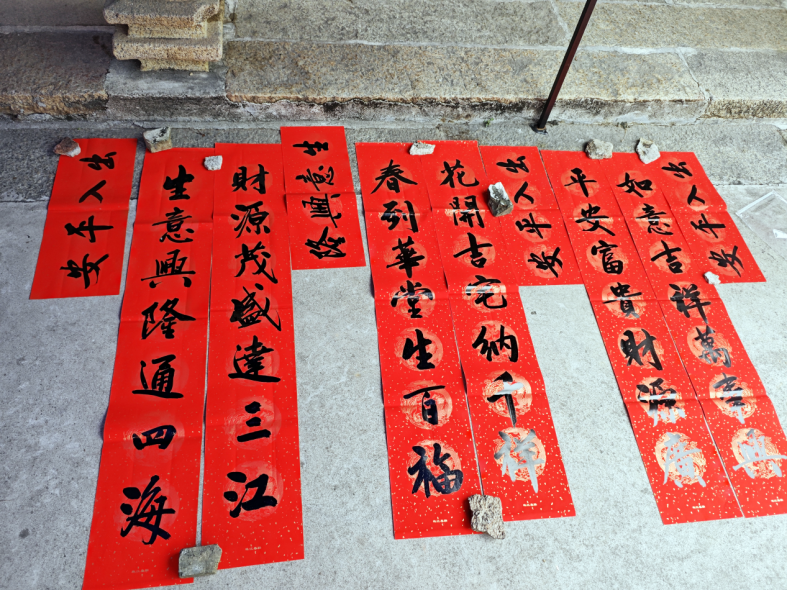 出入平安
生意興隆通四海
財源茂盛達三江
生意興隆
春列華堂生百福
花開吉宅納千祥
出入平安
平安富貴財源廣
如意吉祥萬事興
出入平安